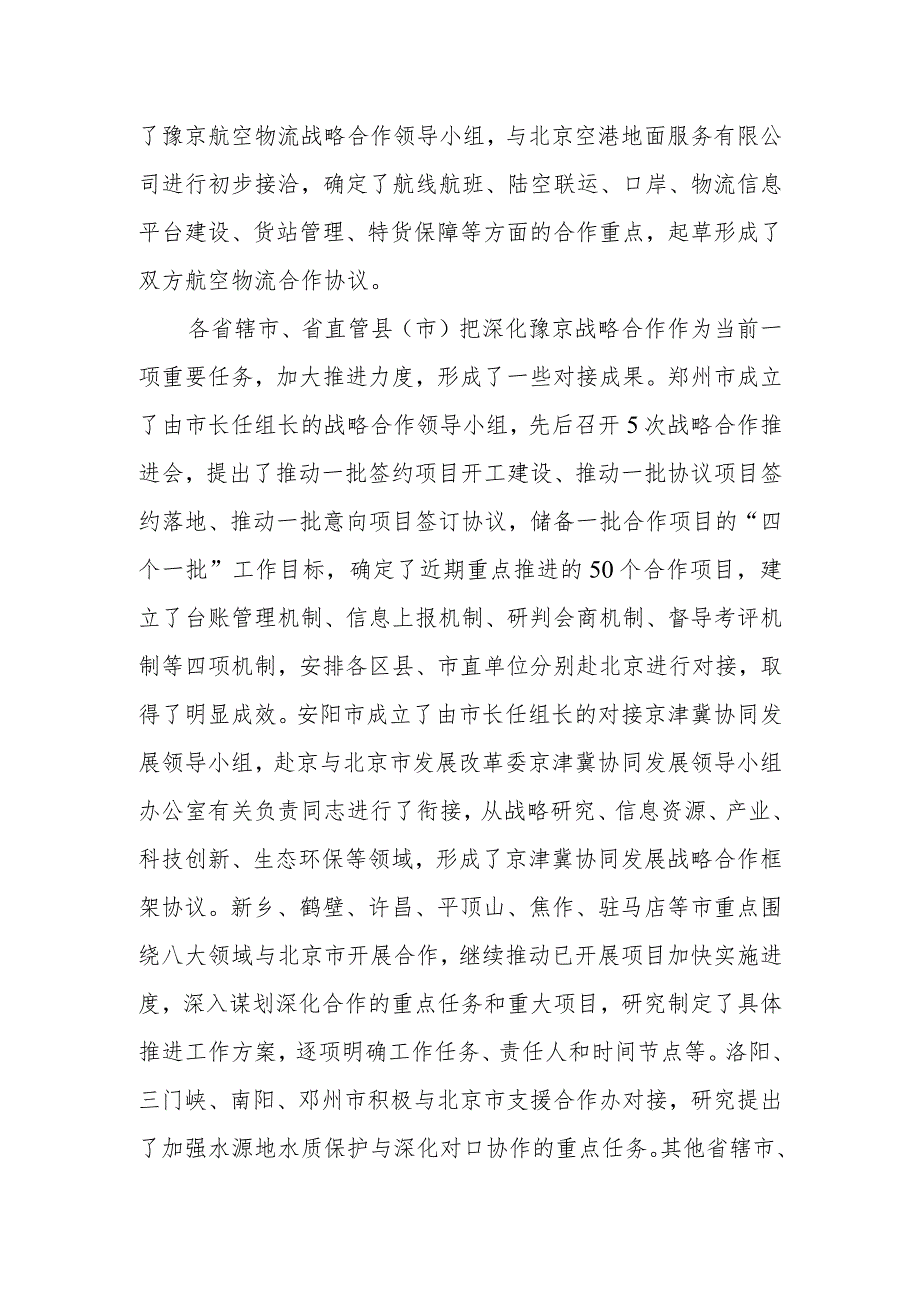 了豫京航空物流战略合作领导小组，与北京空港地面服务有限公
司进行初步接洽，确定了航线航班、陆空联运、口岸、物流信息
平台建设、货站管理、特货保障等方面的合作重点，起草形成了
双方航空物流合作协议。
各省辖市、省直管县（市）把深化豫京战略合作作为当前一
项重要任务，加大推进力度，形成了一些对接成果。郑州市成立
了由市长任组长的战略合作领导小组，先后召开 5 次战略合作推
进会，提出了推动一批签约项目开工建设、推动一批协议项目签
约落地、推动一批意向项目签订协议，储备一批合作项目的“四
个一批”工作目标，确定了近期重点推进的 50 个合作项目，建
立了台账管理机制、信息上报机制、研判会商机制、督导考评机
制等四项机制，安排各区县、市直单位分别赴北京进行对接，取
得了明显成效。安阳市成立了由市长任组长的对接京津冀协同发
展领导小组，赴京与北京市发展改革委京津冀协同发展领导小组
办公室有关负责同志进行了衔接，从战略研究、信息资源、产业、
科技创新、生态环保等领域，形成了京津冀协同发展战略合作框
架协议。新乡、鹤壁、许昌、平顶山、焦作、驻马店等市重点围
绕八大领域与北京市开展合作，继续推动已开展项目加快实施进
度，深入谋划深化合作的重点任务和重大项目，研究制定了具体
推进工作方案，逐项明确工作任务、责任人和时间节点等。洛阳、
三门峡、南阳、邓州市积极与北京市支援合作办对接，研究提出
了加强水源地水质保护与深化对口协作的重点任务。其他省辖市、